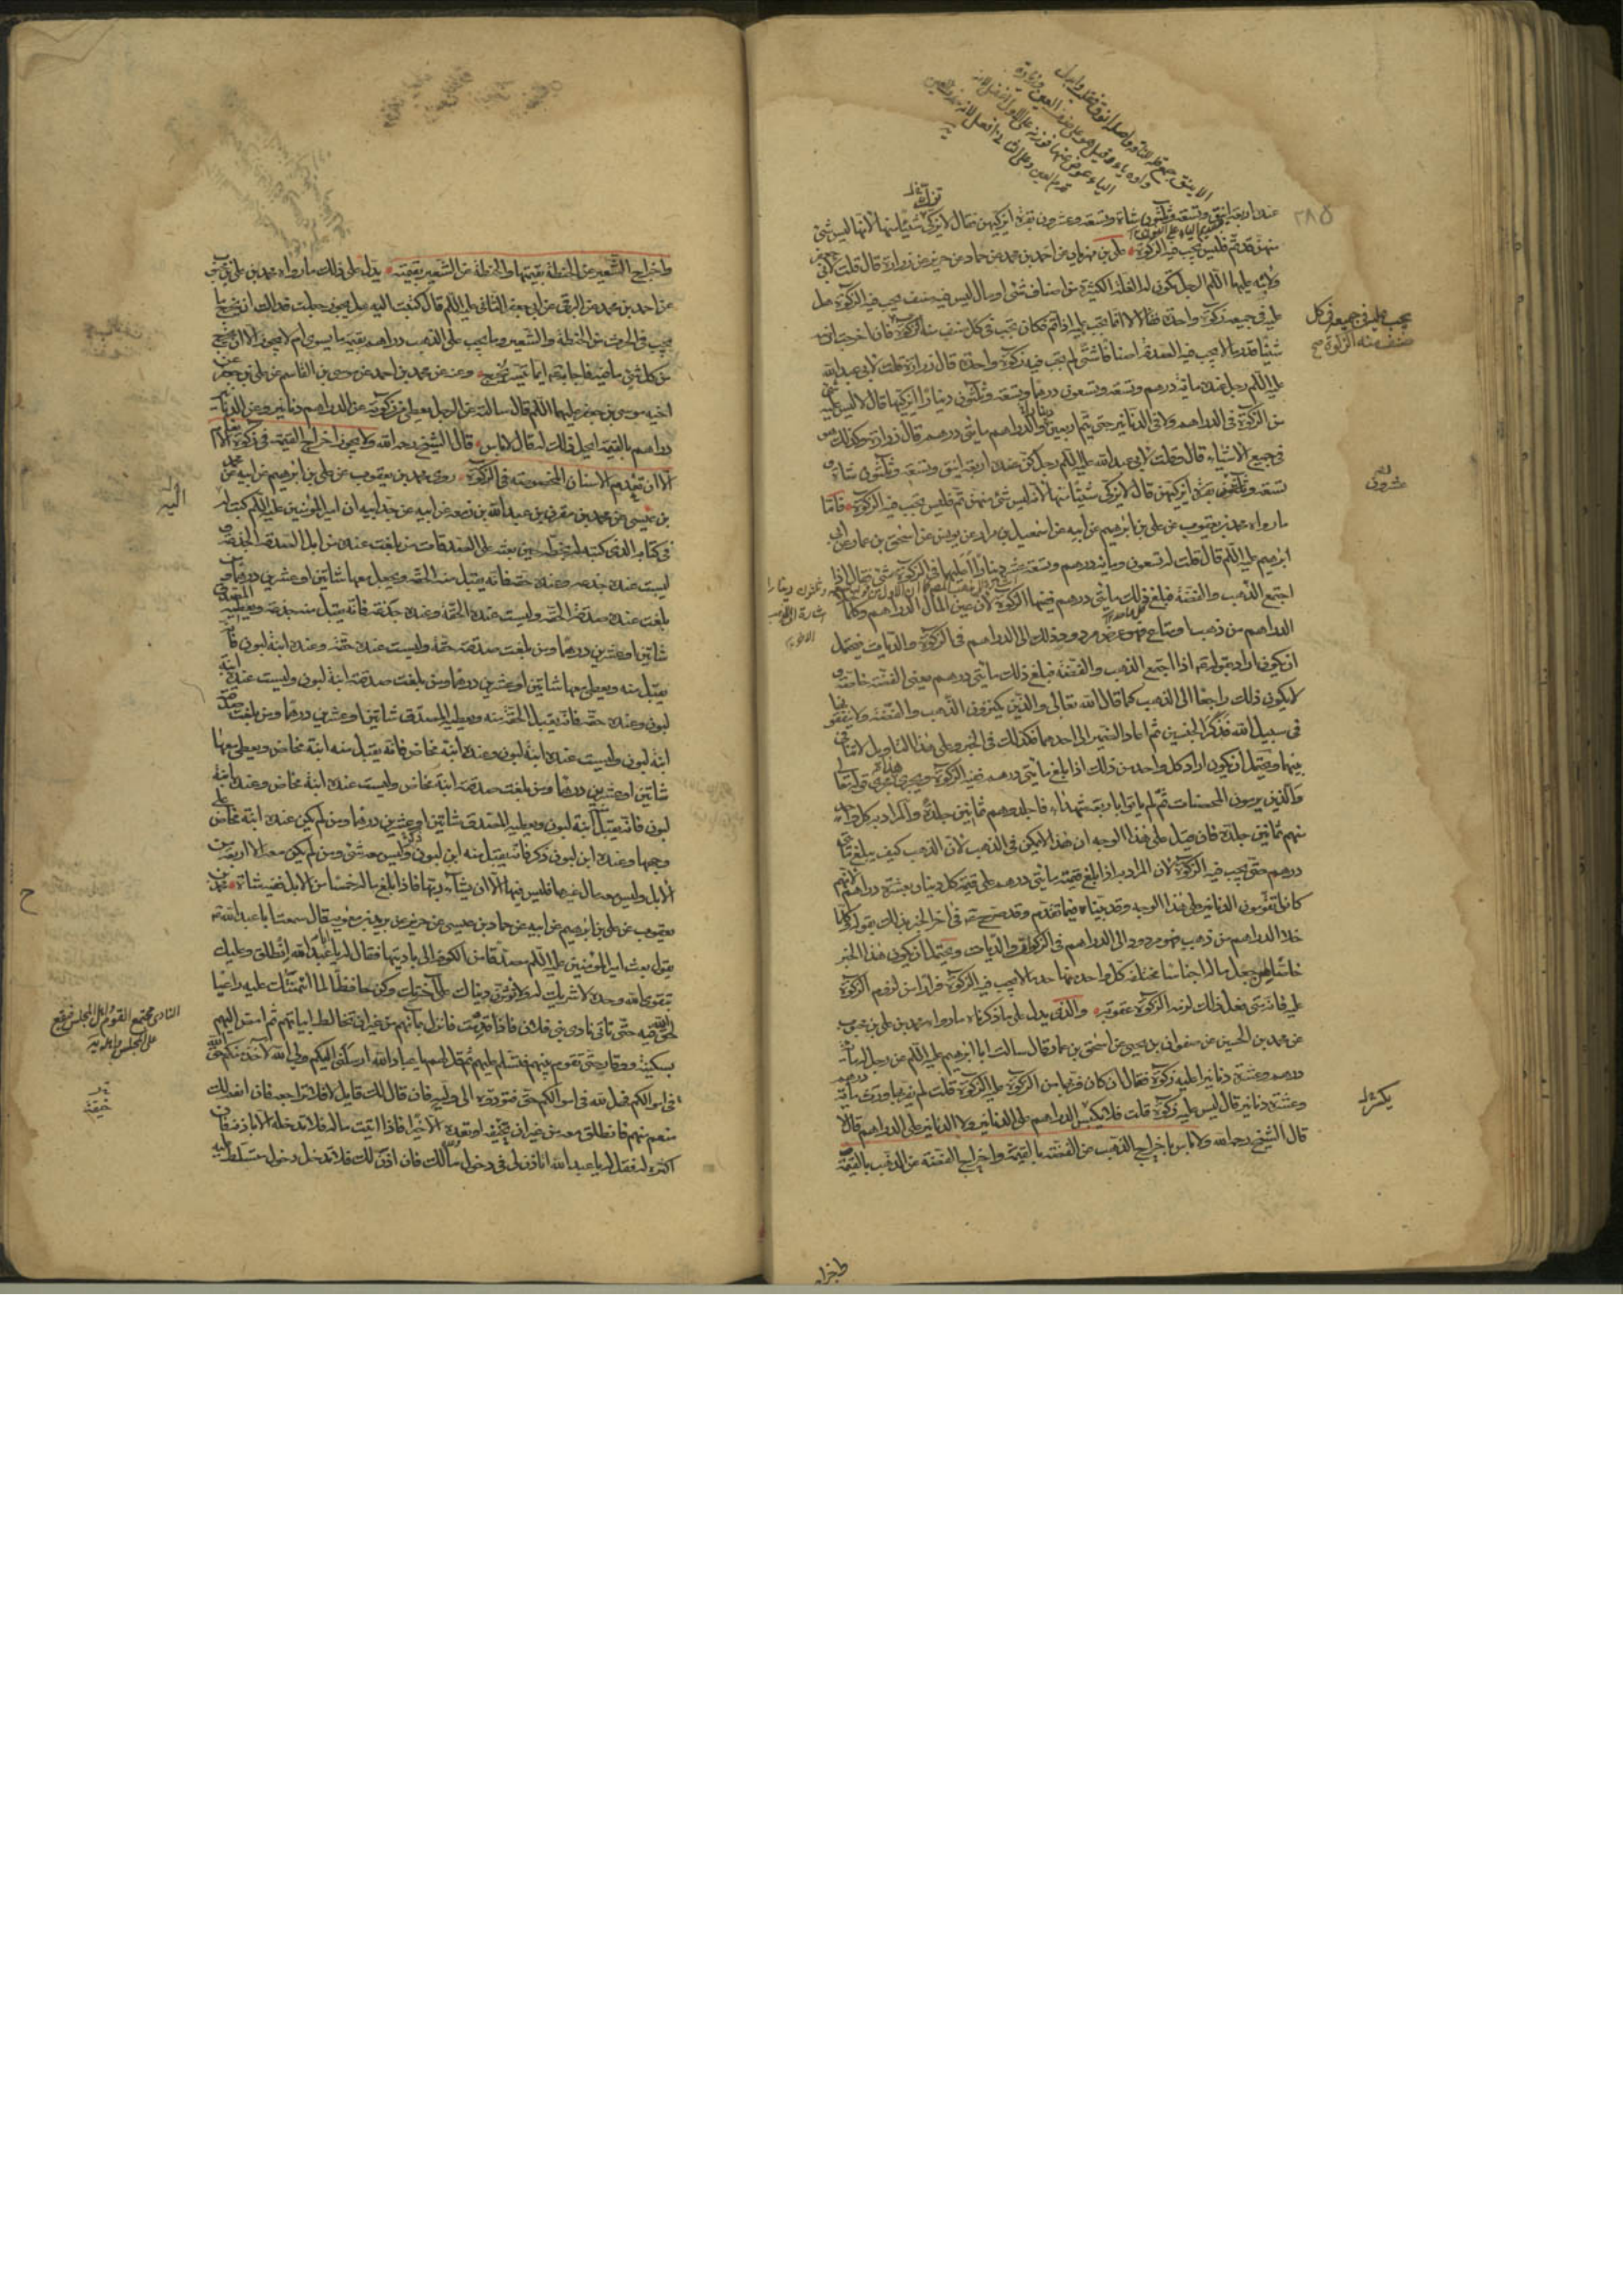 عنده اربعة اينق وتسعة وثلثون شاة وتسعة وعشرون بقرة ايزكيهن فقال لا يزكى شيئا منها لانها ليس شئ
منهن قد تم فليس تجب فيه الزكوة علي بن مهزيار عن احمد بن محمد عن حماد عن حريز عن زرارة قال قلت لابي
ولابنه عليهما السلم الرجل تكون له الغلة الكثيرة من اصناف شتى او مال ليس فيه صنف تجب فيه الزكوة هل
عليه في جميعه زكوة واحدة فقالا لا انما تجب عليه اذا تم فكان تجب في كل صنف منه الزكوة فان اخرجت ارضه
شيئا قدر ما لا تجب فيه الصدقة اصنافا شتى لم تجب فيه زكوة واحدة قال زرارة قلت لابي عبد الله
عليه السلم رجل عنده مائة درهم وتسعة وتسعون درهما وتسعة وثلثون دينارا ايزكيها قال لا ليس عليه شئ
من الزكوة في الدراهم ولا في الدنانير حتى يتم اربعين دينارا والدراهم مائتى درهم قال زرارة وكذلك هو
في جميع الاشياء قال وقلت لابي عبد الله عليه السلم رجل كن عنده اربعة اينق وتسعة وثلثون شاة و
تسعة وثلثون بقرة ايزكيهن قال لا يزكى شيئا منها لانه ليس شئ منهن تم فليس تجب فيه الزكوة فاما
ما رواه محمد بن يعقوب عن علي بن ابرهيم عن ابيه عن اسمعيل بن مرار عن يونس عن اسحق بن عمار عن ابي
ابرهيم عليه السلم قال قلت له تسعون ومائة درهم وتسعة عشر دينارا اعليها في الزكوة شئ فقال اذا
اجتمع الذهب والفضة فبلغ ذلك مائتى درهم ففيها الزكوة لان عين المال الدراهم وكلما
الدراهم من ذهب او متاع فهو عرض مردود ذلك الى الدراهم في الزكوة والديات فيحتمل
ان يكون اراد بقوله ع اذا اجتمع الذهب والفضة فبلغ ذلك مائتى درهم يعنى الفضة خاصة و
لا يكون ذلك راجعا الى الذهب كما قال الله تعالى والذين يكنزون الذهب والفضة ولا ينفقونها
في سبيل الله فذكر الجنسين ثم اعاد الضمير الى احدهما فكذلك في الخبر وعلى هذا التاويل لا تنافي
بينهما ويحتمل ان يكون اراد كل واحد من ذلك اذا بلغ مائتى درهم ففيه الزكوة ويجرى هذا مجرى قوله تعالى
والذين يرمون المحصنات ثم لم ياتوا باربعة شهداء فاجلدوهم ثمانين جلدة والمراد به كل واحد
منهم ثمانين جلدة فان قيل على هذا الوجه ان هذا لا يمكن في الذهب لان الذهب كيف يبلغ مائتى
درهم حتى تجب فيه الزكوة لان المراد به اذا بلغ قيمته مائتى درهم على قيمة كل دينار بعشرة دراهم لانهم
كانوا تقومون الدنانير على هذا الوجه وقد بيناه فيما تقدم وقد صرح ع في اخر الخبر بذلك بقوله كلما
خلا الدراهم من ذهب فهو مردود الى الدراهم في الزكوة والديات ويحتمل ان يكون هذا الخبر
خاصا بمن جعل ماله اجناسا مختلفة كل واحد منها حد ما لا تجب فيه الزكوة فرارا من لزوم الزكوة
عليه فانه متى فعل ذلك لزمه الزكوة عقوبة والذى يدل على ما ذكرناه ما رواه محمد بن علي بن محبوب
عن محمد بن الحسين عن صفوان بن يحيى عن اسحق بن عمار قال سالت ابا ابرهيم عليه السلم عن رجل له مائة
درهم وعشرة دنانير اعليه زكوة فقال ان كان فر بها من الزكوة عليه الزكوة قلت لم يفر بها ورث مائة درهم
وعشرة دنانير قال ليس عليه زكوة قلت فلا يكسر الدراهم على الدنانير ولا الدنانير على الدراهم قال لا
قال الشيخ رحمه الله ولا باس باخراج الذهب عن الفضة بالقيمة واخراج الفضة عن الذهب بالقيمة
تجب عليه في جميعه في كل
صنف منه الزكوة صح
عشرون
يكسر له
واخراج الشعير عن الحنطة بقيمتها والحنطة عن الشعير بقيمته يدل على ذلك ما رواه محمد بن علي بن محبوب
عن احمد بن محمد عن البرقي عن ابي جعفر الثانى عليه السلم قال كتبت اليه هل يجوز جعلت فداك ان يخرج ما
يجب في الحرث من الحنطة والشعير وما يجب على الذهب دراهم بقيمة ما يسوى ام لا يجوز الا ان يخرج
من كل شئ ما فيه فاجابه ع ايما تيسر يخرج وعنه عن محمد بن احمد عن موسى بن القاسم عن علي بن جعفر عن
اخيه موسى بن جعفر عليهما السلم قال سالته عن الرجل يعطى من زكوته عن الدراهم دنانير وعن الدنانير
دراهم بالقيمة ايحل ذلك له قال لا باس قال الشيخ رحمه الله ولا يجوز اخراج القيمة في زكوة الانعام
الا ان تعدم الاسنان المخصوصة في الزكوة روى محمد بن يعقوب عن علي بن ابرهيم عن ابيه عن محمد
بن عيسى عن محمد بن مقرن بن عبد الله بن زمعة عن ابيه عن جد ابيه ان امير المؤمنين عليه السلم كتب له
في كتابه الذى كتبه له بخطه حين بعثه على الصدقات من بلغت عنده من ابل الصدقة الجذعة و
ليست عنده جذعة وعنده حقة فانه يقبل منه الحقة ويجعل معها شاتين او عشرين درهما ومن
بلغت عنده صدقة الحقة وليست عنده الحقة وعنده جذعة فانه يقبل منه جذعة ويعطيه المصدق
شاتين او عشرين درهما ومن بلغت صدقته حقة وليست عنده حقة وعنده ابنة لبون فانه
يقبل منه ويعطى معها شاتين او عشرين درهما ومن بلغت صدقته ابنة لبون وليست عنده ابنة
لبون وعنده حقة فانه يقبل الحقة منه ويعطيه المصدق شاتين او عشرين درهما ومن بلغت صدقته
ابنة لبون وليست عنده ابنة لبون وعنده ابنة مخاض فانه يقبل منه ابنة مخاض ويعطى معها
شاتين او عشرين درهما ومن بلغت صدقته ابنة مخاض وليست عنده ابنة مخاض وعنده ابنة
لبون فانه يقبل منه ابنة لبون ويعطيه المصدق شاتين او عشرين درهما ومن لم يكن عنده ابنة مخاض على
وجهها وعنده ابن لبون ذكر فانه يقبل منه ابن لبون ذكر وليس معه شئ ومن لم يكن معه الا اربعة من
الابل وليس معه مال غيرها فليس فيها الا ان يشآء ربها فاذا بلغ ماله خمسا من الابل ففيه شاة محمد بن
يعقوب عن علي بن ابرهيم عن ابيه عن حماد بن عيسى عن حريز عن بريد بن معوية قال سمعت ابا عبد الله ع
يقول بعث امير المؤمنين عليه السلم مصدقا من الكوفة الى باديتها فقال له يا عبد الله انطلق وعليك
بتقوى الله وحده لا شريك له ولا تؤثرن دنياك على آخرتك وكن حافظا لما ائتمنتك عليه راعيا
لحق الله فيه حتى تاتى نادى بنى فلان فاذا قدمت فانزل بمآئهم من غير ان تخالط ابياتهم ثم امض اليهم
بسكينة ووقار حتى تقوم بينهم فتسلم عليهم ثم قل لهم يا عباد الله ارسلنى اليكم ولى الله لآخذ منكم حق الله
في اموالكم فهل لله في اموالكم حق فتؤدوه الى وليه فان قال لك قايل لا فلا تراجعه فان انعم لك
منعم منهم فانطلق معه من غير ان تخيفه او تعده الا خيرا فاذا اتيت ماله فلا تدخله الا باذنه فان
اكثره له فقل له يا عبد الله اتاذن لى في دخول مالك فان اذن لك فلا تدخل دخول متسلط عليه
النادى مجتمع القوم واهل المجلس فيقع
على المجلس واهله